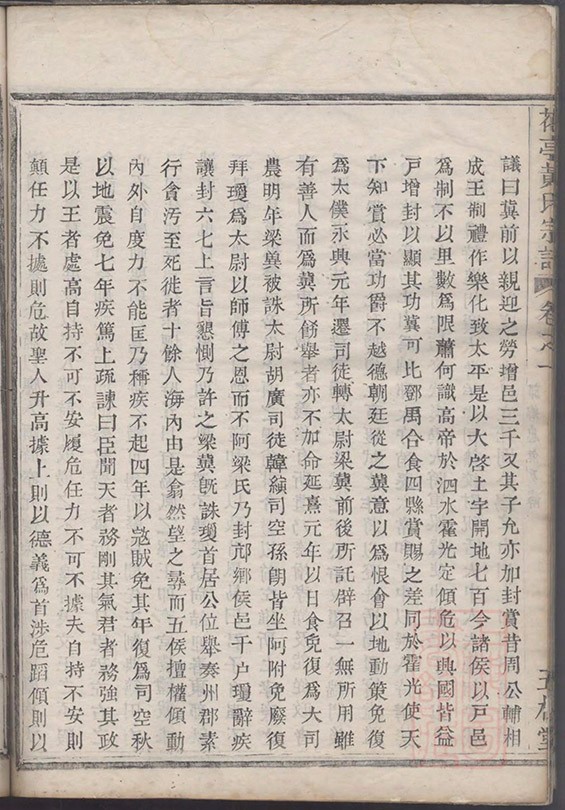 黄氏宗譜 卷之一
議曰冀前以親迎之勞增邑三千又其子允亦加封賞昔周公輔相
成王制禮作樂化致太平是以大啓土宇開地七百今諸侯以戸邑
爲制不以里數爲限蕭何識高帝於泗水霍光定傾危以興國皆益
戸增封以顯其功冀可比鄧禹合食四縣賞賜之差同於霍光使天
下知賞必當功爵不越德朝廷從之冀意以爲恨會以地動策免復
爲太僕永興元年遷司徒轉太尉梁冀前後所託辟召一無所用雖
有善人而爲冀所餙舉者亦不加命延熹元年以日食免復爲大司
農明年梁冀被誅太尉胡廣司徒韓縯司空孫朗皆坐阿附免廢復
拜瓊爲太尉以師傅之恩而不阿梁氏乃封邟鄉侯邑千戸瓊辭疾
讓封六七上言旨懇惻乃許之梁冀旣誅瓊首居公位舉奏州郡素
行貪汚至死徙者十餘人海內由是翕然望之尋而五侯擅權傾動
內外自度力不能匡乃稱疾不起四年以寇賊免其年復爲司空秋
以地震免七年疾篤上疏諫曰臣聞天者務剛其氣君者務強其政
是以王者處高自持不可不安履危任力不可不據夫自持不安則
顛任力不據則危故聖人升高據上則以德義爲首涉危蹈傾則以